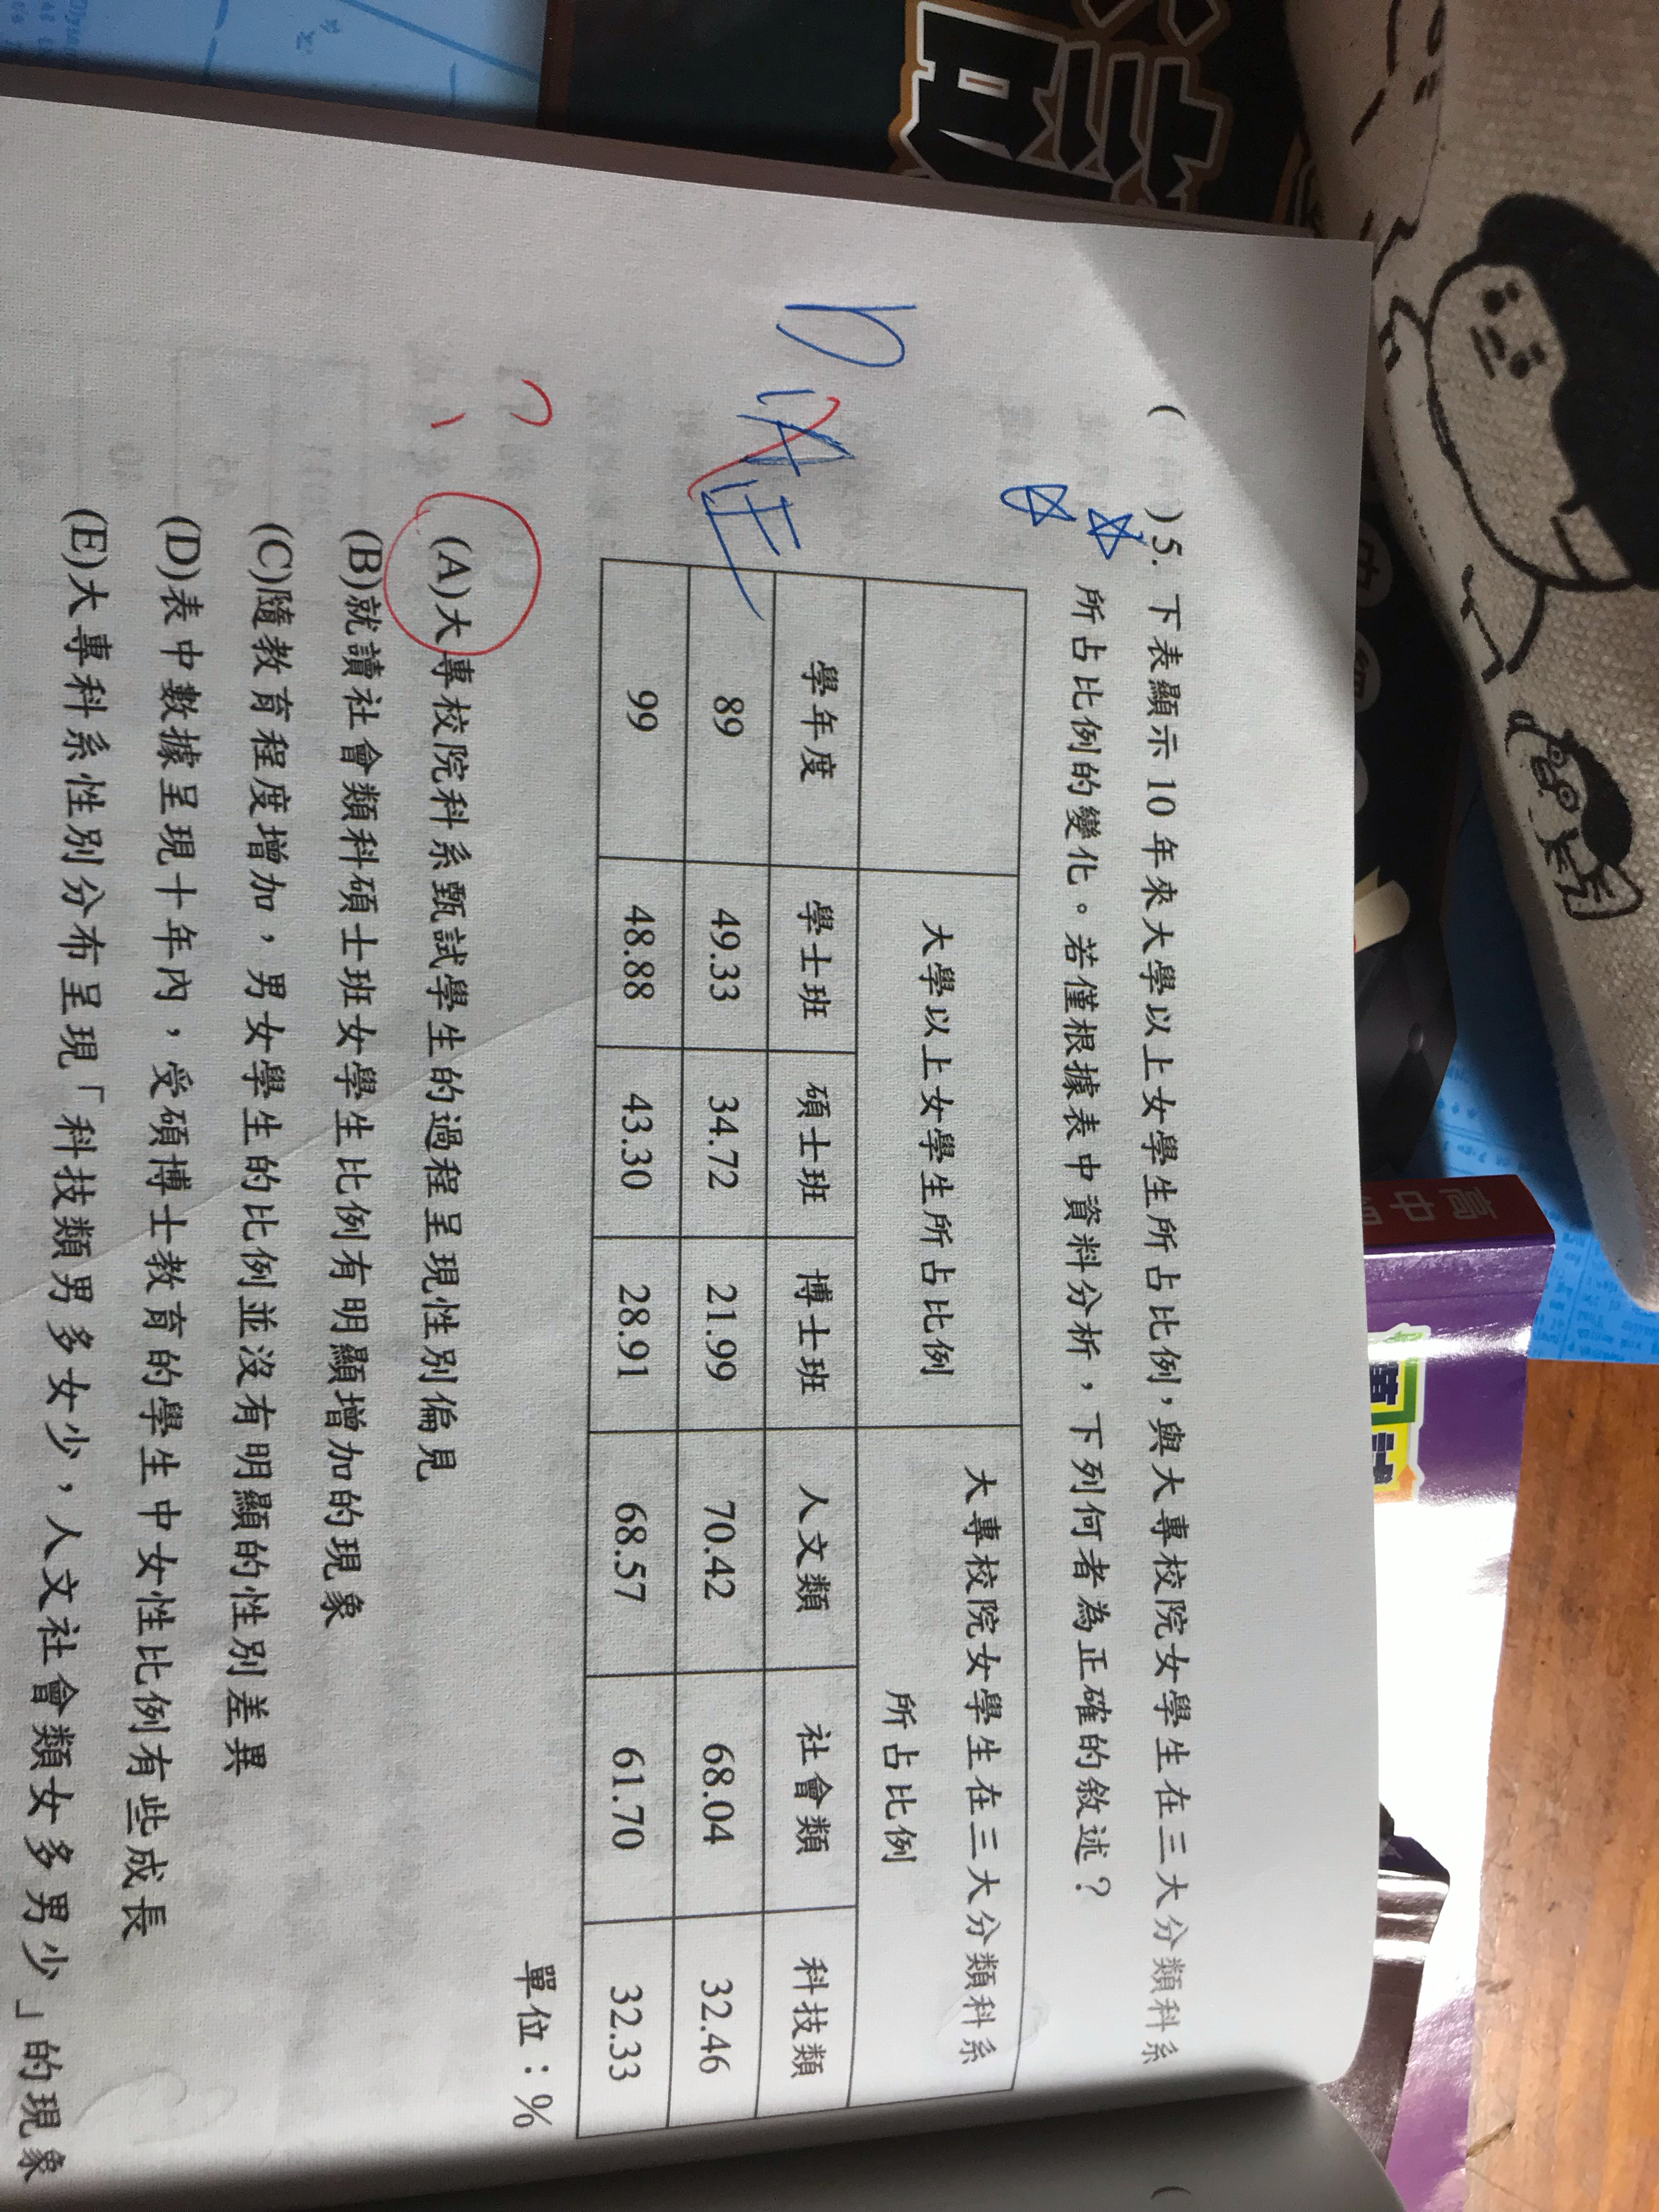 ( )5. 下表顯示 10 年來大學以上女學生所占比例，與大專校院女學生在三大分類科系
所占比例的變化。若僅根據表中資料分析，下列何者為正確的敘述？
大學以上女學生所占比例 大專校院女學生在三大分類科系
所占比例
學年度 學士班 碩士班 博士班 人文類 社會類 科技類
89 49.33 34.72 21.99 70.42 68.04 32.46
99 48.88 43.30 28.91 68.57 61.70 32.33
單位：%
(A)大專校院科系甄試學生的過程呈現性別偏見
(B)就讀社會類科碩士班女學生比例有明顯增加的現象
(C)隨教育程度增加，男女學生的比例並沒有明顯的性別差異
(D)表中數據呈現十年內，受碩博士教育的學生中女性比例有些成長
(E)大專科系性別分布呈現「科技類男多女少，人文社會類女多男少」的現象
高中